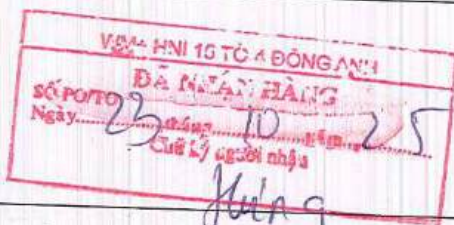 HNI 16 TỔ 4 ĐÔNG ANH
ĐÃ NHẬN HÀNG
SỐ PO/TO
Ngày 23 tháng 10 năm 25
Chữ ký người nhận
Hưng